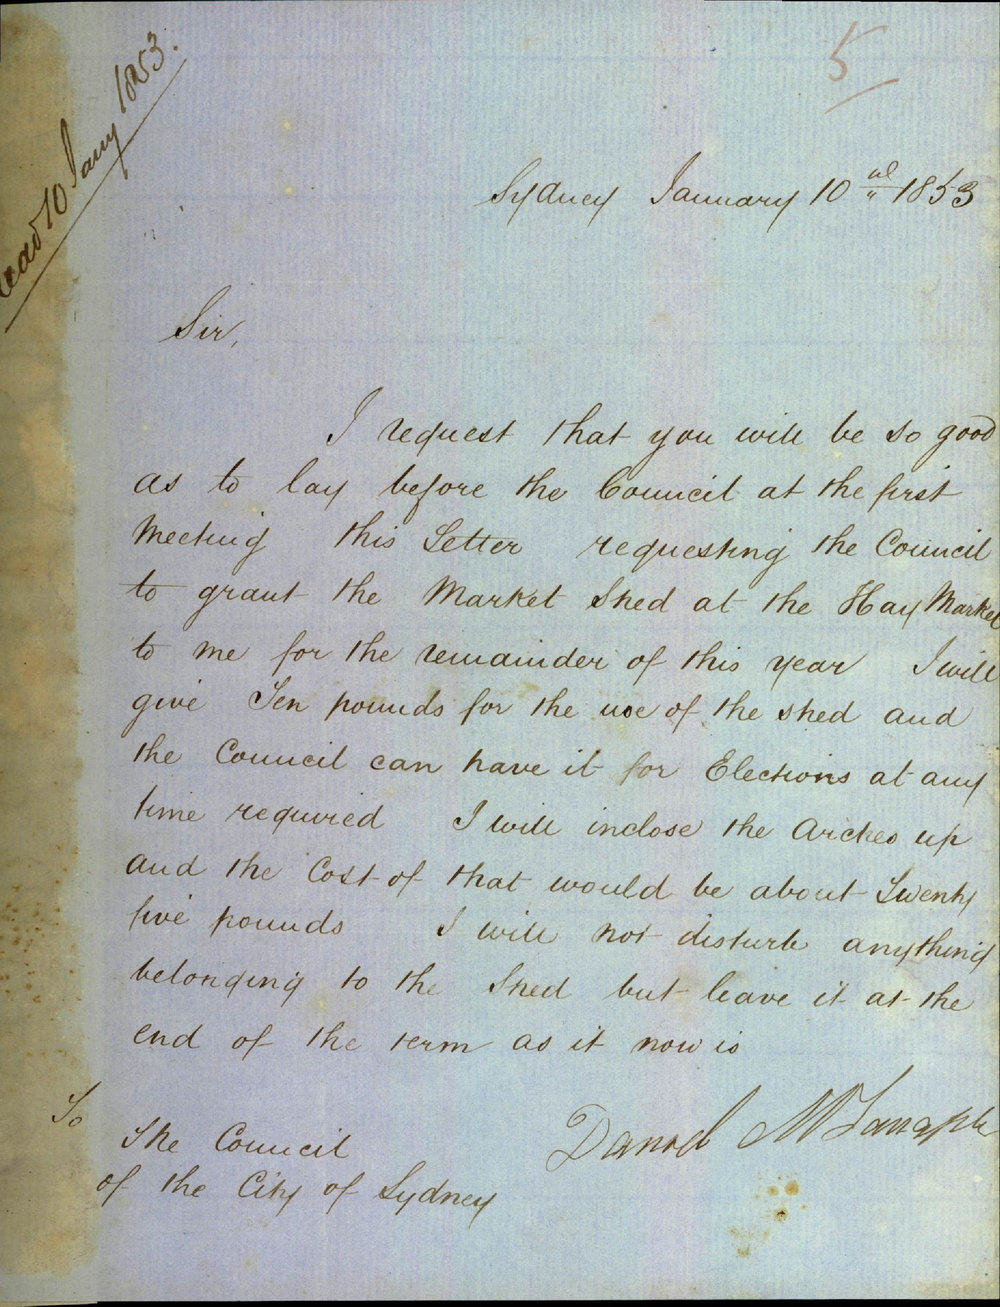 read 10 Jany 1853.
5
Sydney January 10th 1853
Sir,
I request that you will be so good
as to lay before the Council at the first
Meeting this Letter requesting the Council
to grant the Market Shed at the Hay Market
to me for the remainder of this year I will
give Ten pounds for the use of the shed and
the Council can have it for Elections at any
time required I will inclose the Arches up
and the Cost of that would be about Twenty
five pounds I will not disturb anything
belonging to the Shed but leave it at the
end of the term as it now is
Daniel
To
The Council
of the City of Sydney